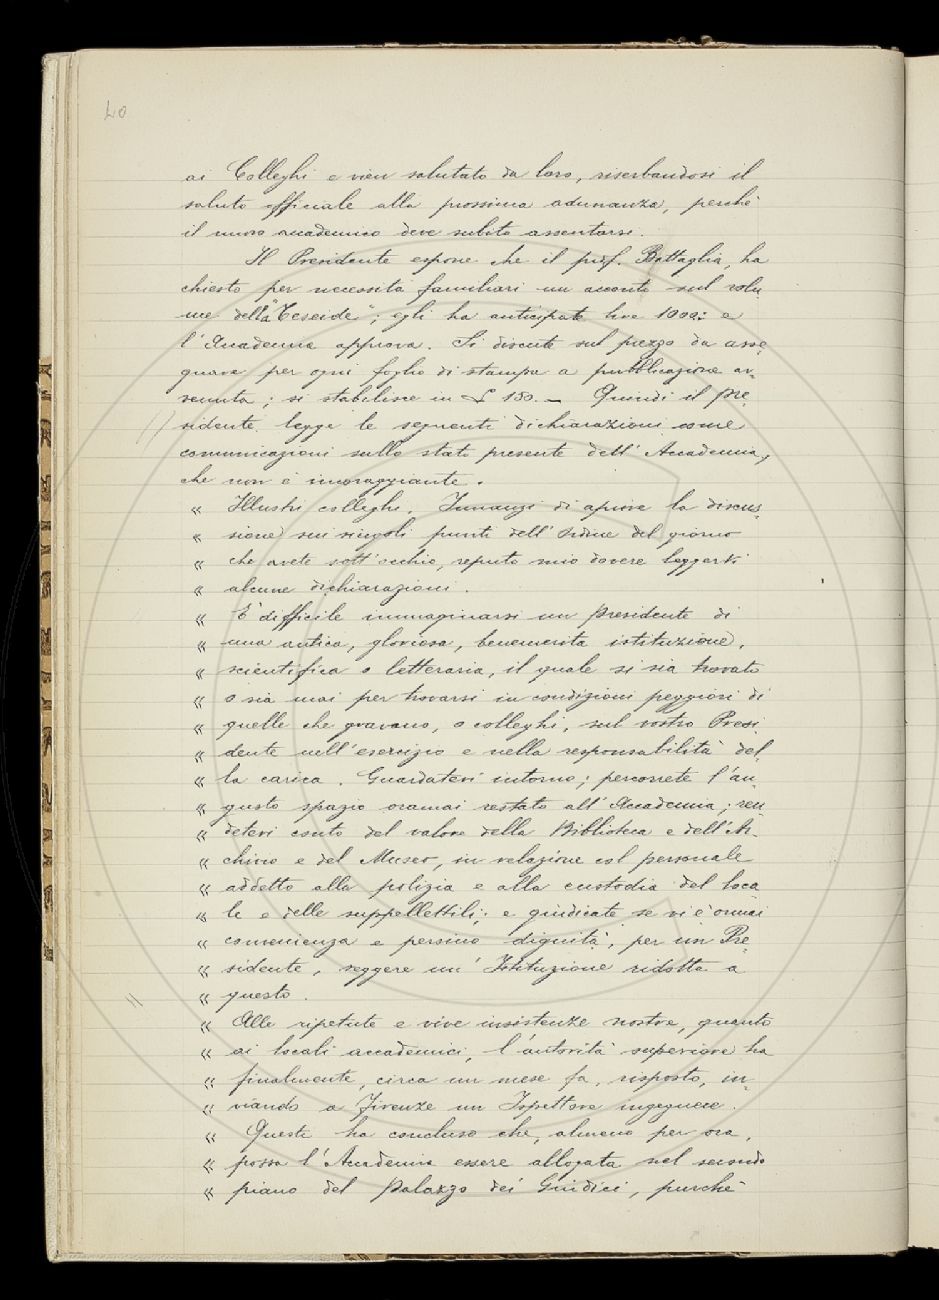 40
ai Colleghi e vien salutato da loro, riserbandosi il
saluto officiale alla prossima adunanza, perché
il nuovo accademico deve subito assentarsi.
Il Presidente espone che il prof. Battaglia, ha
chiesto per necessità familiari un acconto sul volu
me della "Teseide"; egli ha anticipate lire 1000: e
l'Accademia approva. Si discute sul prezzo da asse
gnare per ogni foglio di stampa a pubblicazione av-
venuta; si stabilisce in £ 150. — Quindi il Pre-
sidente legge le seguenti dichiarazioni come
comunicazioni sullo stato presente dell'Accademia,
che non è incoraggiante.
« Illustri colleghi. Innanzi di aprire la discus-
« sione sui singoli punti dell'ordine del giorno
« che avete sott'occhio, reputo mio dovere leggervi
« alcune dichiarazioni.
« È difficile immaginarsi un Presidente di
« una antica, gloriosa, benemerita istituzione,
« scientifica o letteraria, il quale si sia trovato
« o sia mai per trovarsi in condizioni peggiori di
« quelle che gravano, o colleghi, sul vostro Presi
« dente nell'esercizio e nella responsabilità del-
« la carica. Guardatevi intorno; percorrete l'an-
« gusto spazio oramai restato all'Accademia; ren
« detevi conto del valore della Biblioteca e dell'Ar-
« chivio e del Museo, in relazione col personale
« addetto alla pulizia e alla custodia del loca
« le e delle suppellettili; e giudicate se vi è ormai
« convenienza e persino dignità, per un Pre-
« sidente, reggere un'Istituzione ridotta a
« questo.
« Alle ripetute e vive insistenze nostre, quanto
« ai locali accademici, l'autorità superiore ha
« finalmente, circa un mese fa, risposto, in-
« viando a Firenze un Ispettore ingegnere.
« Questi ha concluso che, almeno per ora,
« possa l'Accademia essere allogata nel secondo
« piano del Palazzo dei Giudici, purché